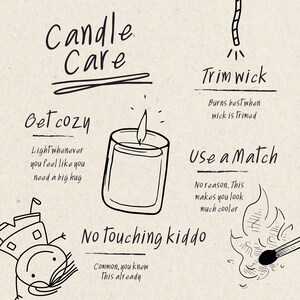 Candle
Care
Trim wick
Burns best when
wick is trimed
Get cozy
Light whenever
you feel like you
need a big hug
Use a Match
No reason. This
makes you look
much cooler
No touching kiddo
Common, you know
this already